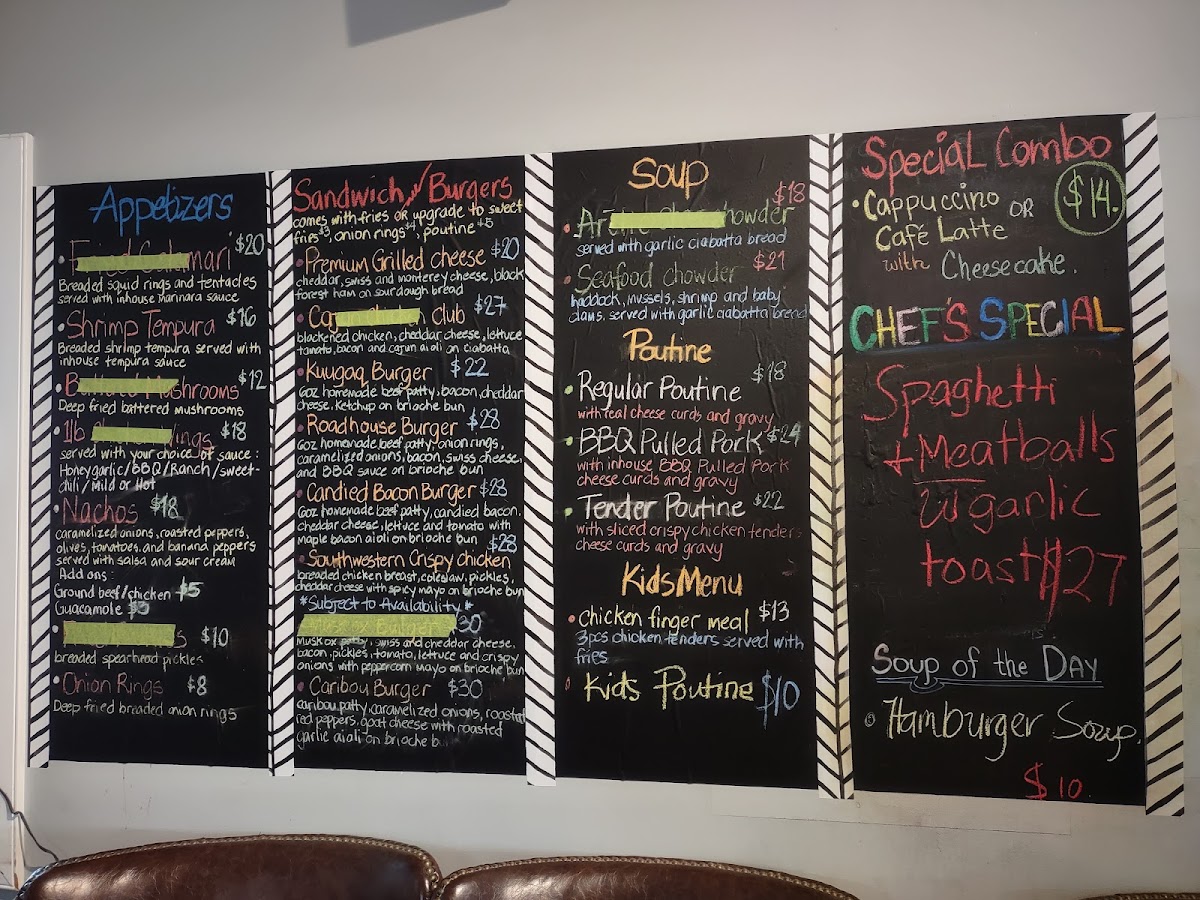 Appetizers
mari $20
Breaded squid rings and tentacles
served with inhouse marinara sauce
Shrimp Tempura $16
Breaded shrimp tempura served with
inhouse tempura sauce
B shrooms $12
Deep fried battered mushrooms
1lb ings $18
served with your choice of sauce:
Honeygarlic/BBQ/Ranch/sweet-
chili/Mild or Hot
Nachos $18
caramelized onions, roasted peppers,
olives, tomatoes, and banana peppers
served with salsa and sour cream
Add ons:
Ground beef/chicken $5
Guacamole
s $10
breaded spearhead pickles
Onion Rings $8
Deep fried breaded onion rings
Sandwich, Burgers
comes with fries or upgrade to sweet
fries $3, onion rings $4, poutine $5
Premium Grilled cheese $20
cheddar, swiss and monterey cheese, black
forest ham on sourdough bread
Ca club $27
blackened chicken, cheddar cheese, lettuce
tomato, bacon and cajun aioli on ciabatta
Kuugaq Burger $22
6oz homemade beef patty, bacon, cheddar
cheese, ketchup on brioche bun
Roadhouse Burger $28
6oz homemade beef patty, onion rings,
caramelized onions, bacon, swiss cheese,
and BBQ sauce on brioche bun
Candied Bacon Burger $28
6oz homemade beef patty, candied bacon,
cheddar cheese, lettuce and tomato with
maple bacon aioli on brioche bun
Southwestern Crispy Chicken $28
breaded chicken breast, coleslaw, pickles,
cheddar cheese with spicy mayo on brioche bun
*Subject to Availability*
30
muskox patty, swiss and cheddar cheese,
bacon, pickles, tomato, lettuce and crispy
onions with peppercorn mayo on brioche bun
Caribou Burger $30
caribou patty, caramelized onions, roasted
red peppers, goat cheese with roasted
garlic aioli on brioche bun
Soup
Ar howder $18
served with garlic ciabatta bread
Seafood chowder $21
haddock, mussels, shrimp and baby
clams, served with garlic ciabatta bread
Poutine
Regular Poutine $18
with real cheese curds and gravy
BBQ Pulled Pork $24
with inhouse BBQ Pulled Pork
cheese curds and gravy
Tender Poutine $22
with sliced crispy chicken tenders
cheese curds and gravy
Kids Menu
chicken finger meal $13
3pcs chicken tenders served with
fries
Kids Poutine $10
Special Combo
Cappuccino OR $14.
Café Latte
with Cheesecake.
CHEF'S SPECIAL
Spaghetti
+ Meatballs
w/ garlic
toast $27
Soup of the Day
Hamburger Soup.
$10.